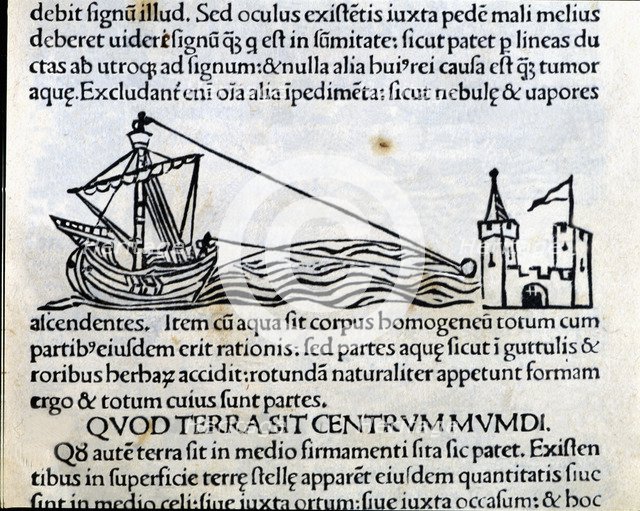 debit signū illud. Sed oculus existētis iuxta pedē mali melius
deberet uidere signū q̄ꝫ q est in sūmitate: sicut patet ꝑ lineas du
ctas ab utroqꝫ ad signum: & nulla alia huiꝰ rei causa est q̄ꝫ tumor
aquę. Excludant᷑ eni oīa alia īpedimēta: sicut nebulę & uapores
ascendentes. Item cū aqua sit corpus homogeneū totum cum
partibꝰ eiusdem erit rationis: sed partes aquę sicut ī guttulis &
roribus herbaꝝ accidit: rotundā naturaliter appetunt formam
ergo & totum cuius sunt partes.
QVOD TERRA SIT CENTRVM MVMDI.
Qꝺ autē terra sit in medio firmamenti sita sic patet. Existen
tibus in superficie terrę stellę apparēt eiusdem quantitatis siue
sint in medio celi: siue iuxta ortum: siue iuxta occasum: & hoc